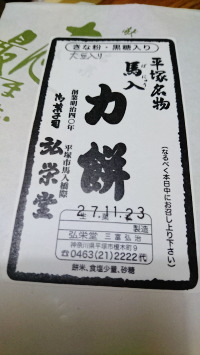 きな粉・黒糖入り
大豆入り
平塚名物
馬入
ばにゅう
力餅
(なるべく本日中にお召し上り下さい)
創業明治四〇年
御菓子司
平塚市馬入橋際
弘栄堂
27.11.23
製造
弘栄堂 三冨弘治
神奈川県平塚市榎木町9
☎0463(21)2222代
餅米、食塩少量、砂糖